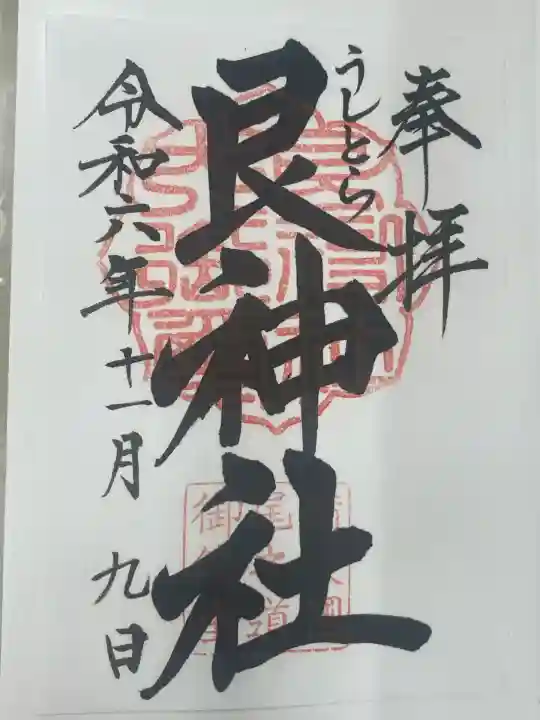 奉拝
うしとら
艮神社
令和六年十一月 九日
尾道
御